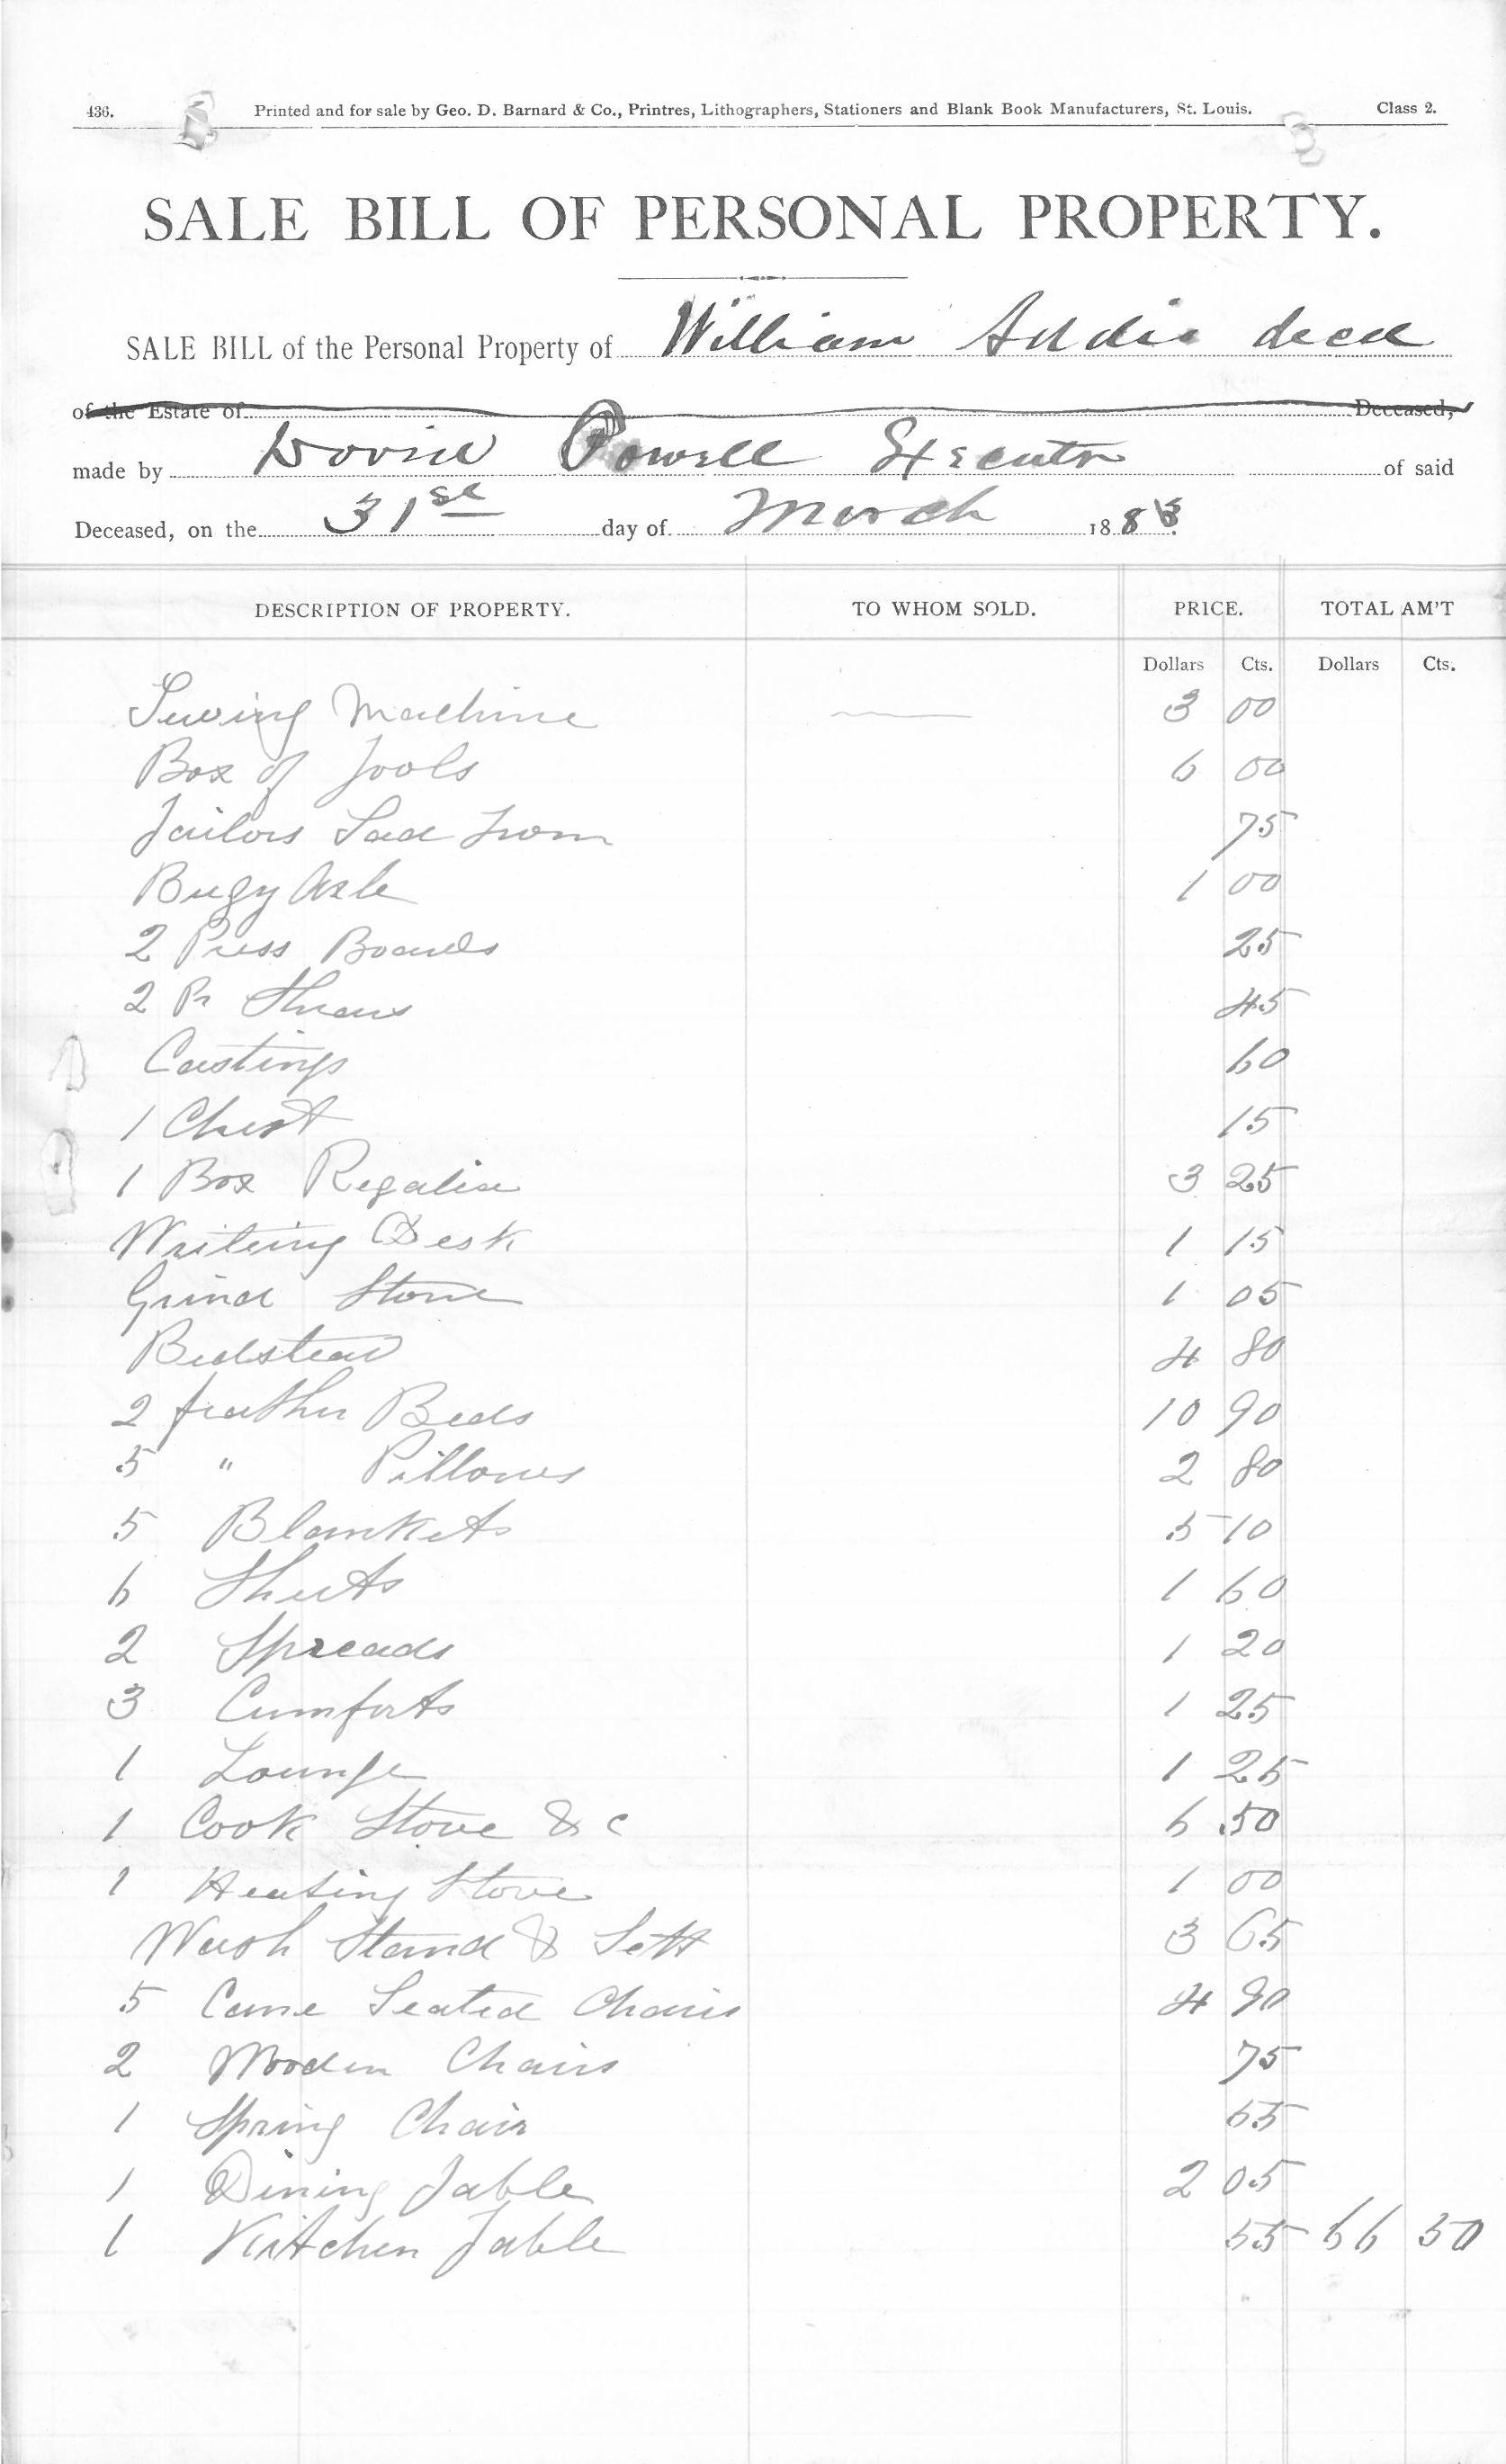 436. Printed and for sale by Geo. D. Barnard & Co., Printres, Lithographers, Stationers and Blank Book Manufacturers, St. Louis. Class 2.
SALE BILL OF PERSONAL PROPERTY.
SALE BILL of the Personal Property of William Addie decd
of the Estate of Deceased,
made by David Powell Executor of said
Deceased, on the 31st day of March 1888.
DESCRIPTION OF PROPERTY. TO WHOM SOLD. PRICE. TOTAL AM'T
Dollars Cts. Dollars Cts.
Sewing Machine 3 00
Box of Tools 6 00
Tailors Sad Irom 75
Bugy Axle 1 00
2 Press Boards 25
2 Pr Shears 45
Castings 60
1 Chest 15
1 Box Regalia 3 25
Writeing Desk 1 15
Grind Stone 1 05
Bedstead 4 80
2 feather Beds 10 90
5 " Pillows 2 80
5 Blankets 5 10
6 Sheets 1 60
2 Spreads 1 20
3 Cumforts 1 25
1 Lounge 1 25
1 Cook Stove & c 6 50
1 Heating Stove 1 00
Wash Stand & Sett 3 65
5 Cane Seated Chairs 4 90
2 Wooden Chairs 75
1 Spring Chair 55
1 Dining Table 2 05
1 Kitchen Table 55 66 50